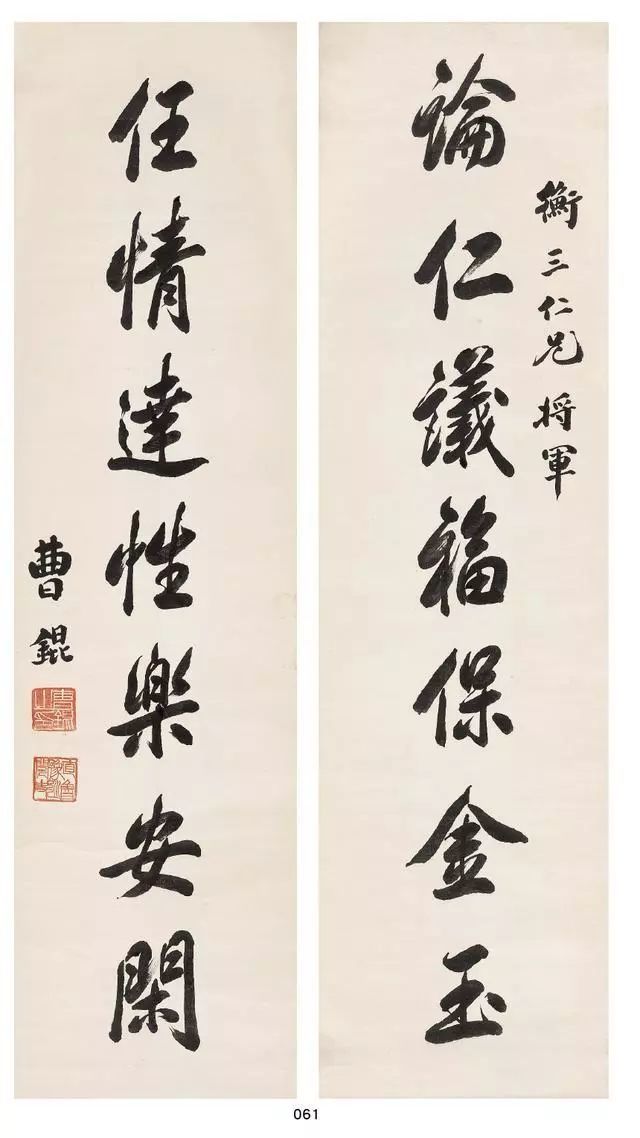 衡三仁兄將軍
論仁議福保金玉
任情達性樂安閑
曹錕
曹錕之印
061